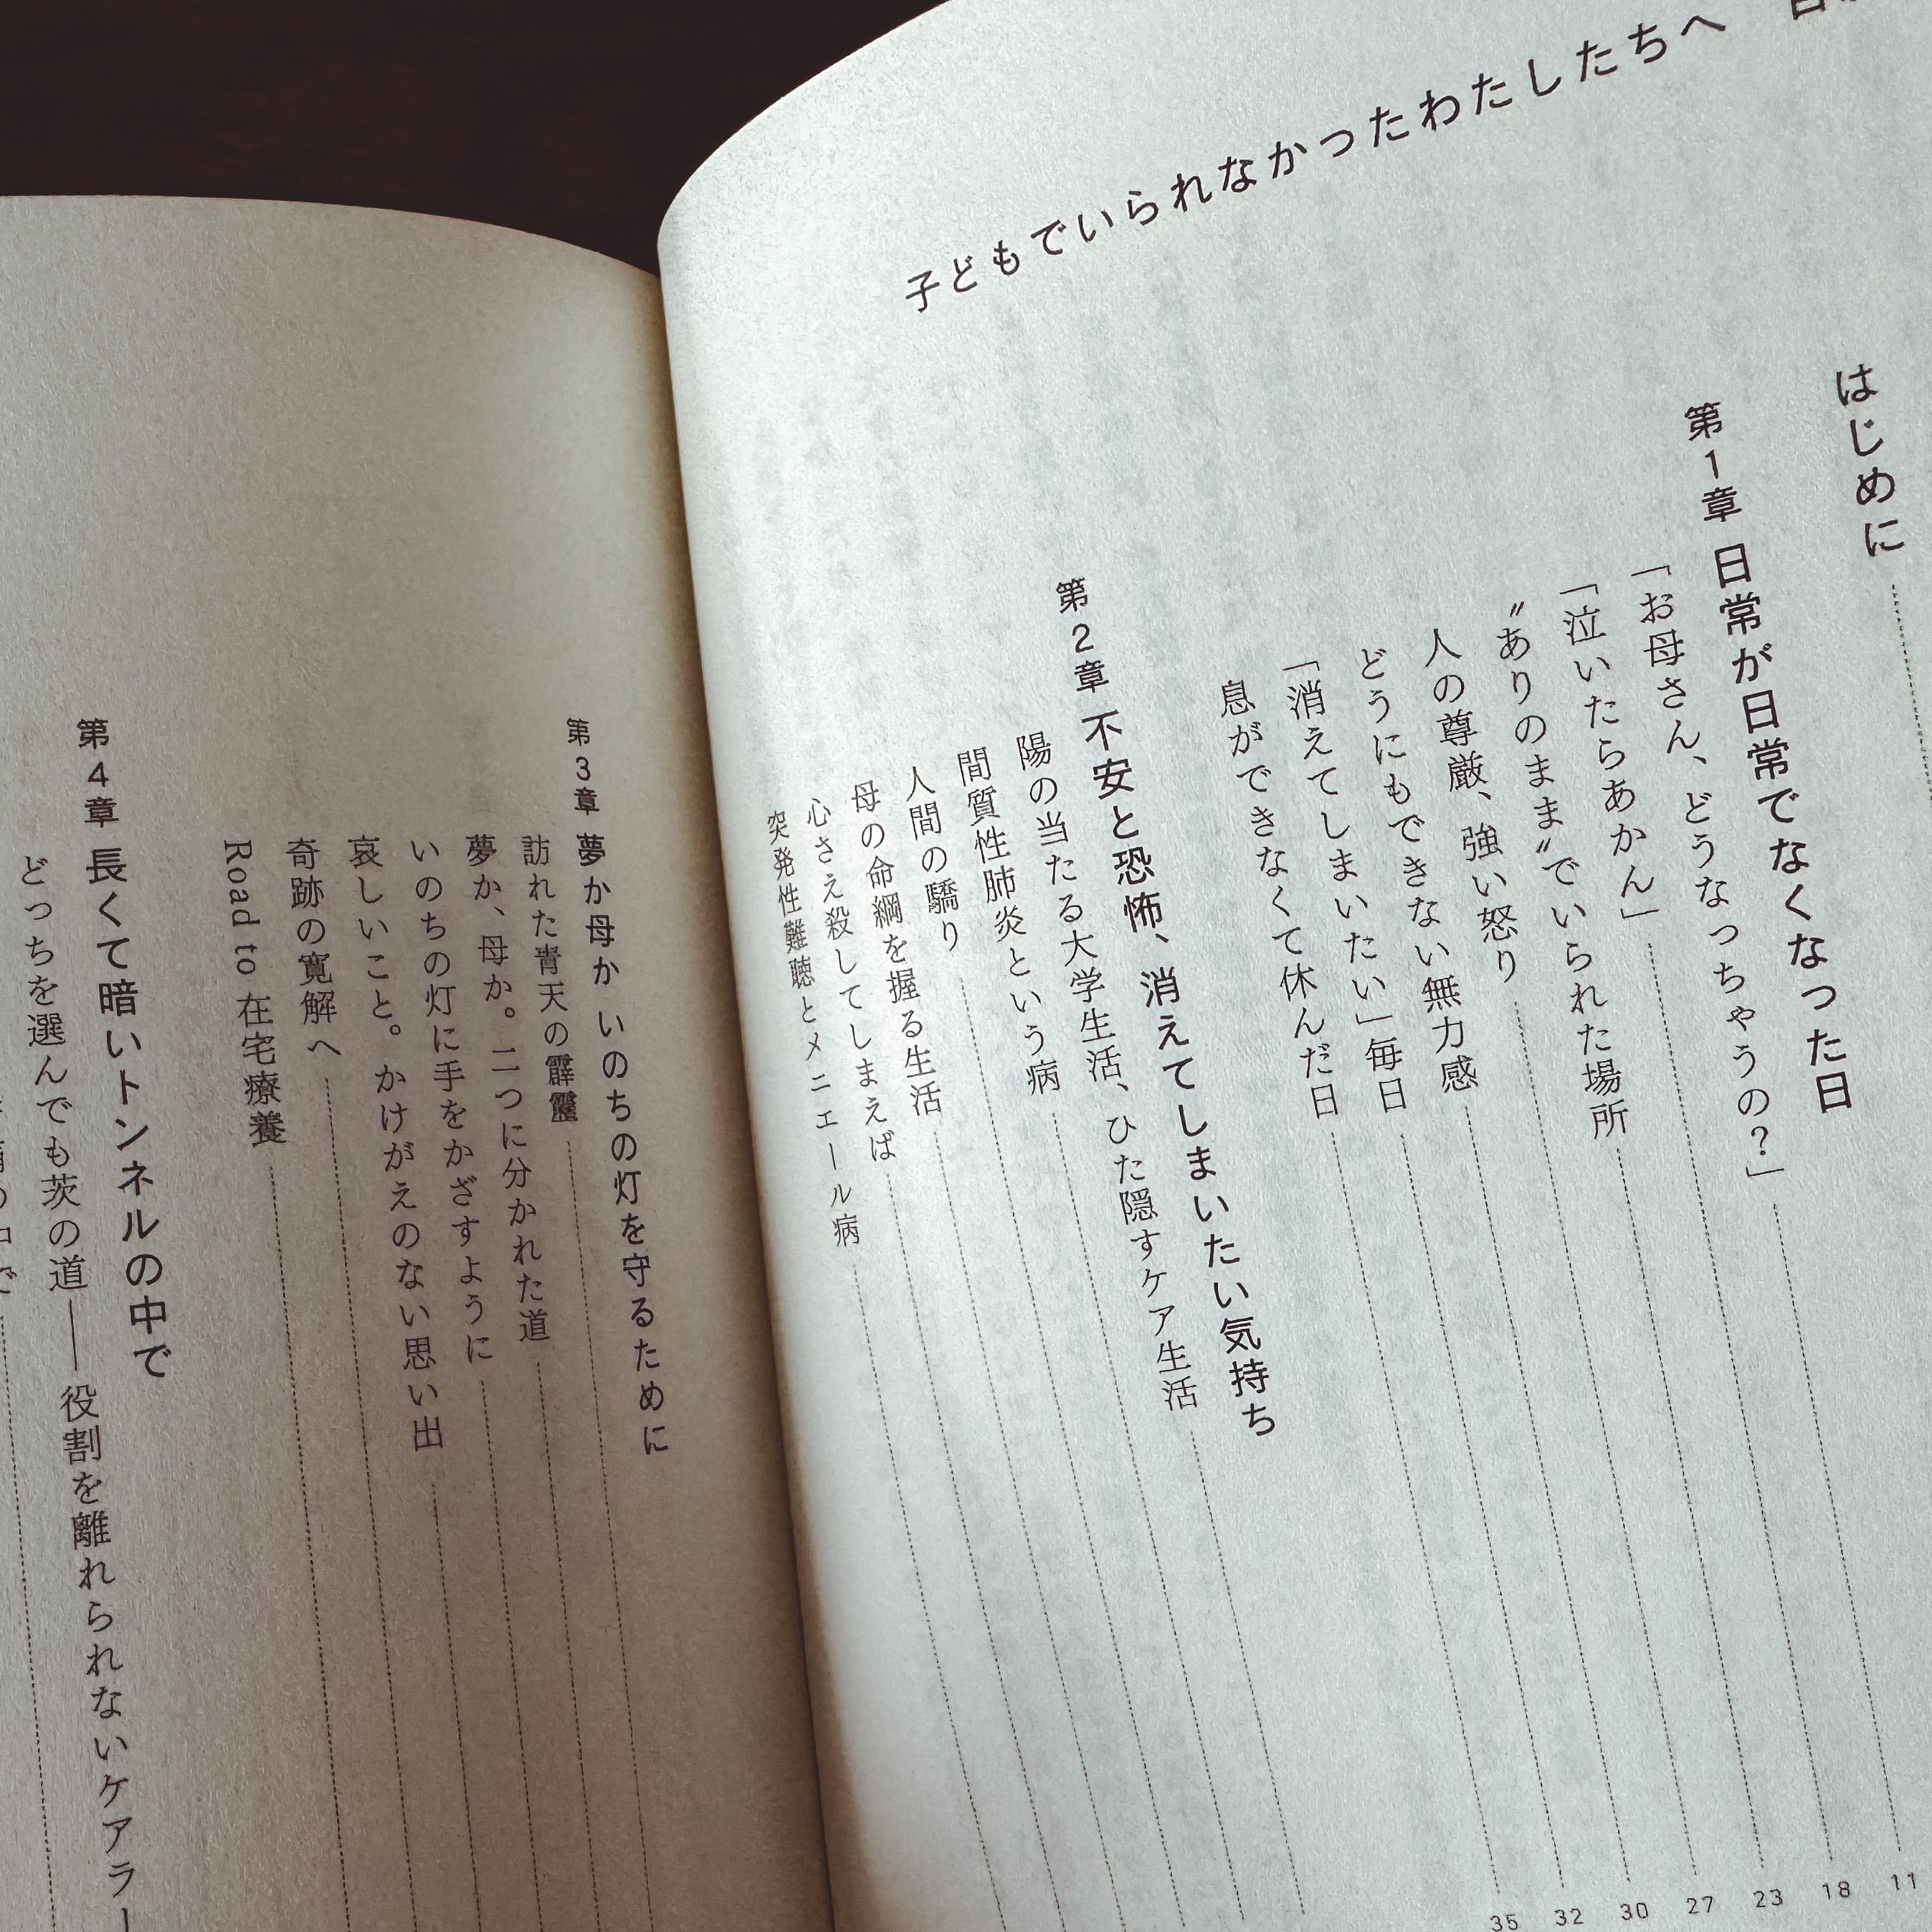 子どもでいられなかったわたしたちへ
はじめに 11
第1章 日常が日常でなくなった日
「お母さん、どうなっちゃうの?」 18
「泣いたらあかん」 23
〝ありのまま〟でいられた場所 27
人の尊厳、強い怒り 30
どうにもできない無力感 32
「消えてしまいたい」毎日 35
息ができなくて休んだ日
第2章 不安と恐怖、消えてしまいたい気持ち
陽の当たる大学生活、ひた隠すケア生活
間質性肺炎という病
人間の驕り
母の命綱を握る生活
心さえ殺してしまえば
突発性難聴とメニエール病
第3章 夢か母か いのちの灯を守るために
訪れた青天の霹靂
夢か、母か。二つに分かれた道
いのちの灯に手をかざすように
哀しいこと。かけがえのない思い出
奇跡の寛解へ
Road to 在宅療養
第4章 長くて暗いトンネルの中で
どっちを選んでも茨の道――役割を離れられないケアラー